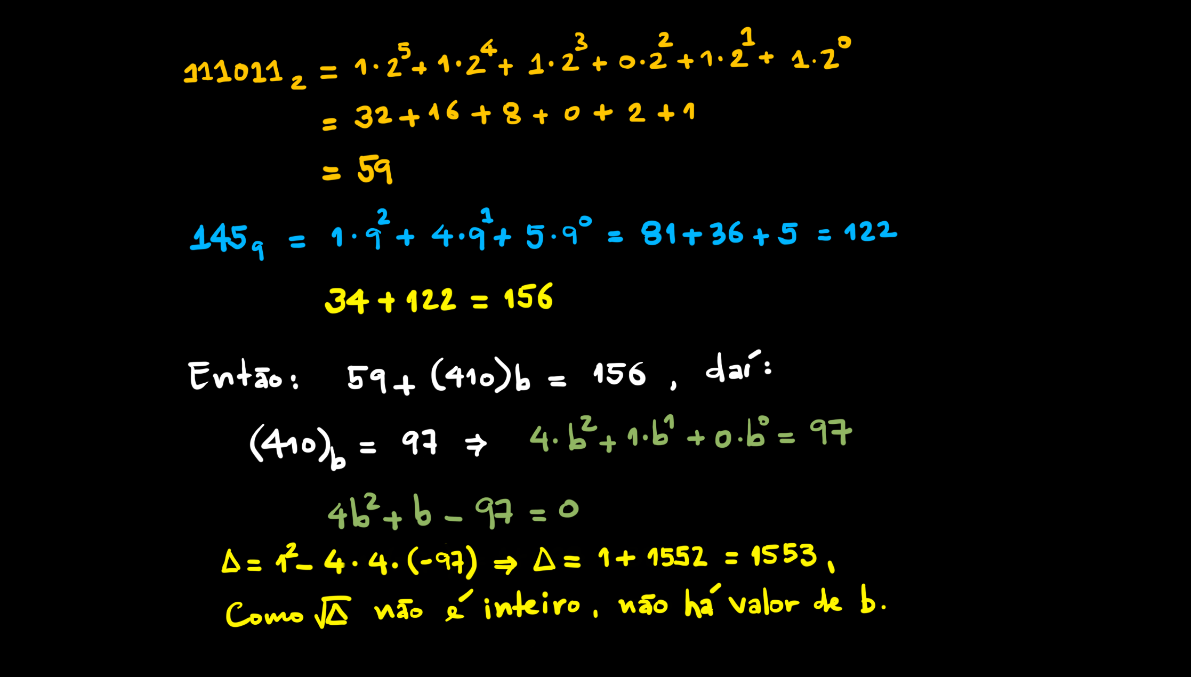 111011₂ = 1·2⁵+1·2⁴+ 1·2³+0·2²+1·2¹+ 1·2⁰
= 32+16+8+0+2+1
= 59
145₉ = 1·9²+ 4·9¹+ 5·9⁰ = 81+36+5 = 122
34+122 = 156
Então: 59+(410)b = 156, daí:
(410)b = 97 ⇒ 4·b²+1·b¹+0·b⁰ = 97
4b²+b-97 = 0
Δ = 1²-4·4·(-97) ⇒ Δ = 1+1552 = 1553,
Como √Δ não é inteiro, não há valor de b.